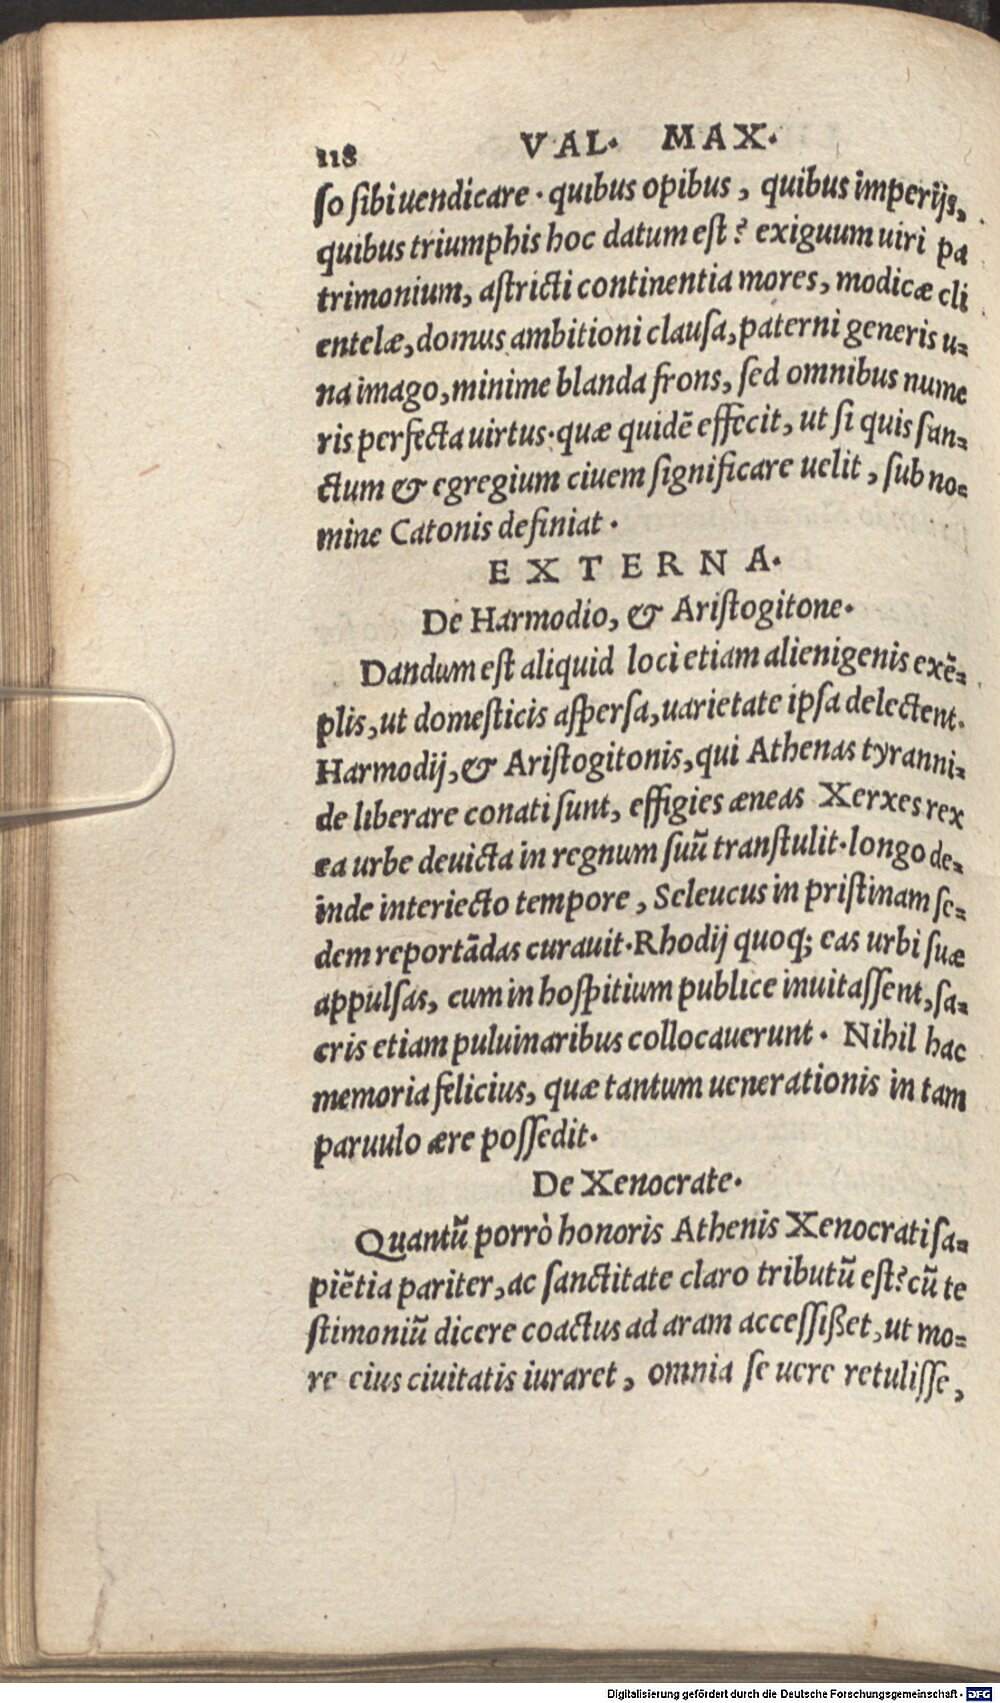 118 VAL. MAX.
ſo ſibi uendicare. quibus opibus, quibus imperijs,
quibus triumphis hoc datum eſt? exiguum uiri pa
trimonium, aſtricti continentia mores, modicæ cli
entelæ, domus ambitioni clauſa, paterni generis u-
na imago, minime blanda frons, ſed omnibus nume
ris perfecta uirtus. quæ quidē effecit, ut ſi quis ſan-
ctum & egregium ciuem ſignificare uelit, ſub no-
mine Catonis definiat.
EXTERNA.
De Harmodio, & Ariſtogitone.
Dandum eſt aliquid loci etiam alienigenis exē-
plis, ut domeſticis aſperſa, uarietate ipſa delectent.
Harmodij, & Ariſtogitonis, qui Athenas tyranni-
de liberare conati ſunt, effigies æneas Xerxes rex
ea urbe deuicta in regnum ſuū tranſtulit. longo de-
inde interiecto tempore, Seleucus in priſtinam ſe-
dem reportādas curauit. Rhodij quoq; eas urbi ſuæ
appulſas, cum in hoſpitium publice inuitaſſent, ſa-
cris etiam puluinaribus collocauerunt. Nihil hac
memoria felicius, quæ tantum uenerationis in tam
paruulo ære poſſedit.
De Xenocrate.
Quantū porrò honoris Athenis Xenocrati ſa-
piētia pariter, ac ſanctitate claro tributū eſt? cū te
ſtimoniū dicere coactus ad aram acceſſißet, ut mo-
re eius ciuitatis iuraret, omnia ſe uere retuliſſe,
Digitalisierung gefördert durch die Deutsche Forschungsgemeinschaft - DFG